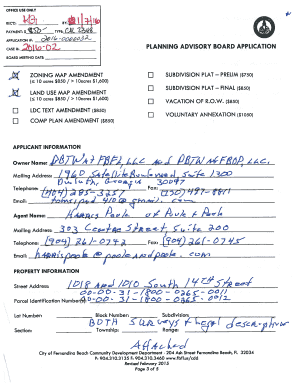 OFFICE USE ONLY
REC'D: KG BY: 1/7/16
PAYMENT: $ 850- TYPE: CK
APPLICATION #: 2016-0000032
CASE #: 2016-02
BOARD MEETING DATE:
PLANNING ADVISORY BOARD APPLICATION
ZONING MAP AMENDMENT
(≤ 10 acres $850 / > 10 acres $1,600)
LAND USE MAP AMENDMENT
(≤ 10 acres $850 / > 10 acres $1,600)
LDC TEXT AMENDMENT ($850)
COMP PLAN AMENDMENT ($850)
SUBDIVISION PLAT – PRELIM ($750)
SUBDIVISION PLAT – FINAL ($850)
VACATION OF R.O.W. ($850)
VOLUNTARY ANNEXATION ($1050)
APPLICANT INFORMATION
Owner Name: DBTWAFFBFI, LLC and DBTWAFFBOP, LLC.
Mailing Address: 1960 Satellite Boulevard, Suite 1300
Duluth, Georgia 30097
Telephone: (404) 285-3257 Fax:
Email:
Agent Name: Harris Poole of Poole & Poole
Mailing Address: 303 Centre Street, Suite 200
Telephone: (904) 261-0742 Fax: (904) 261-0745
Email: harrispoole@pooleandpoole.com
PROPERTY INFORMATION
Street Address: 1018 and 1010 South 14th Street
00-00-31-1800-0365-0011
Parcel Identification Number(s): 00-00-31-1800-0365-0012
Lot Number: Block Number: Subdivision:
Section: Township: Range:
BOTH Surveys & legal descriptions
Attached
City of Fernandina Beach Community Development Department · 204 Ash Street Fernandina Beach, FL 32034
P: 904.310.3135 F: 904.310.3460 www.fbfl.us/cdd
Revised February 2015
Page 3 of 5